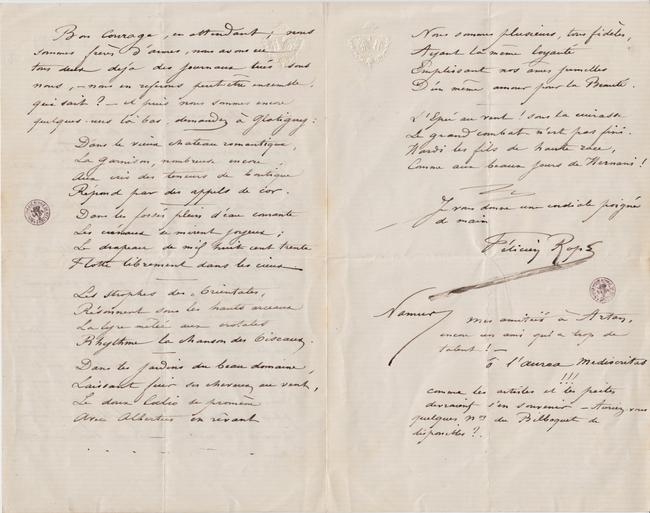 Bon courage, en attendant, nous
sommes frères d'armes, nous avons eu
tous deux déjà des journaux tués sous
nous, – nous en referons peut être ensemble,
qui sait ? – et puis nous sommes encore
quelques-uns là bas, demandez à Glatigny :
Dans le vieux chateau romantique,
La Garnison, nombreuse encore
Aux cris des teneurs de
Répond par des appels de cor.
Dans les fossés pleins d'eau courante
Les créneaux se mirent joyeux ;
Le drapeau de mil huit cent trente
Flotte librement dans les cieux –
Les strophes des Orientales,
Résonnent sous les hauts arceaux
La lyre mêlée aux crotales
Rhythme la chanson des Oiseaux.
Dans les jardins du beau domaine,
Laissant fuir ses cheveux au vent,
Le doux Coelio se promène
Avec Albertus en rêvant
Nous sommes plusieurs, tous fidèles,
Ayant la même loyauté
Emplissant nos âmes jumelles
D'un même amour pour la Beauté.
L'Epée au vent ! sous la cuirasse
Le grand combat n'est pas fini.
Hardi les fils de haute race,
Comme aux beaux jours de Hernani !
Je vous donne une cordiale poignée
de main
Félicien Rops
Namur
Mes amitiés à Artan,
encore un ami qui a trop de
talent ! –
Ô l'aurea Mediocritas
!!!
comme les artistes et les poètes
devraient s'en souvenir – Auriez-vous
quelques nos du Bilboquet de
disponibles ?.